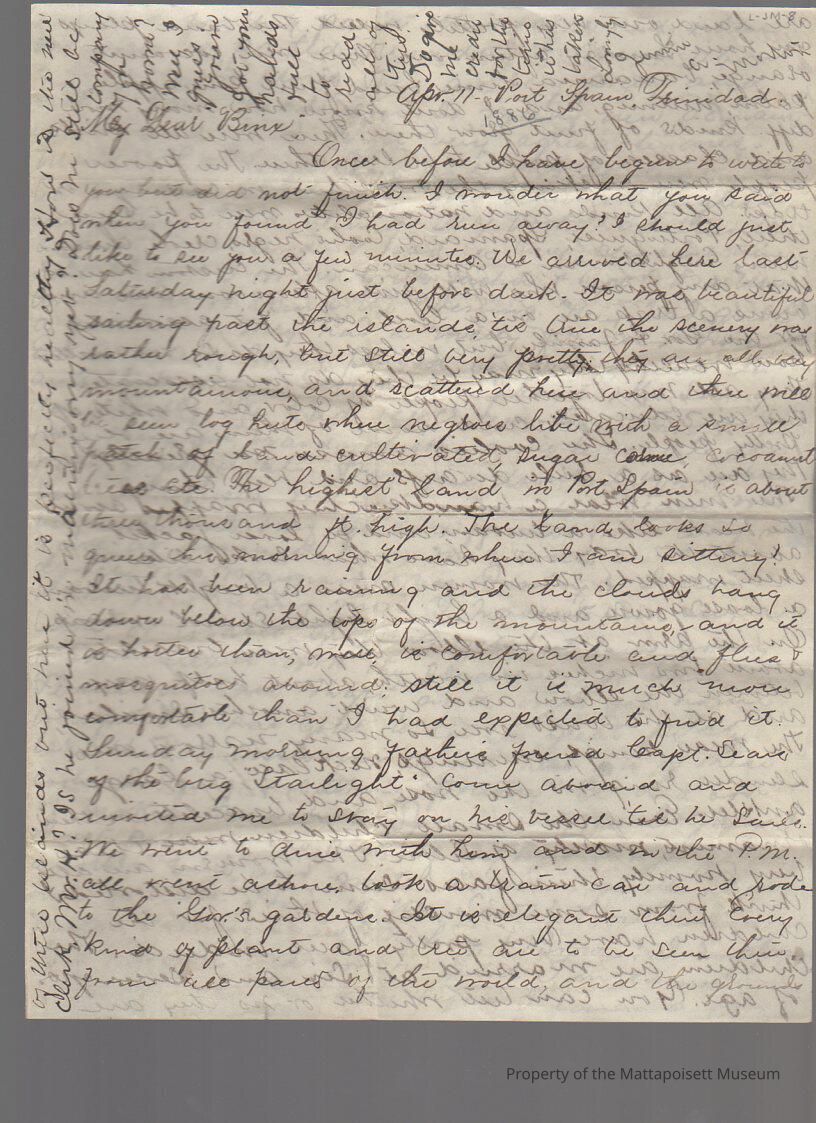 Apr. 11 - Port Spain, Trinidad.
1886
My Dear Binx
Once before I have begun to write to
you but did not finish. I wonder what you said
when you found I had run away? I should just
like to see you a few minutes. We arrived here last
Saturday night just before dark. It was beautiful
sailing past the islands, tis true the scenery was
rather rough, but still very pretty, they are all very
mountainous, and scattered here and there will
seen log huts where negroes live with a small
patch of land cultivated, sugar cane, cocoanut
trees etc. The highest land in Port Spain is about
three thousand ft. high. The land looks so
green this morning from where I am sitting!
It has been raining and the clouds hang
down below the tops of the mountains, and it
is hotter than, well, is comfortable and flies &
mosquitoes abound. Still it is much more
comfortable than I had expected to find it.
Sunday morning father's friend Capt. Sears
of the brig "Starlight" came aboard and
invited me to stay on his vessel 'til he sails.
We went to dine with him and in the P.M.
all went ashore, took a tram car and rode
to the Gov's gardens. It is elegant there. Every
kind of plant and tree are to be seen there
from all parts of the world, and the grounds
company
for
home?
Well I
guess
you've
got your
hands
full
to
read
all of
this
To give
me
credit
for the
time
it has
taken
Lovingly
Clerk, Mr. H? Is he joined in matrimony yet? Does he still be